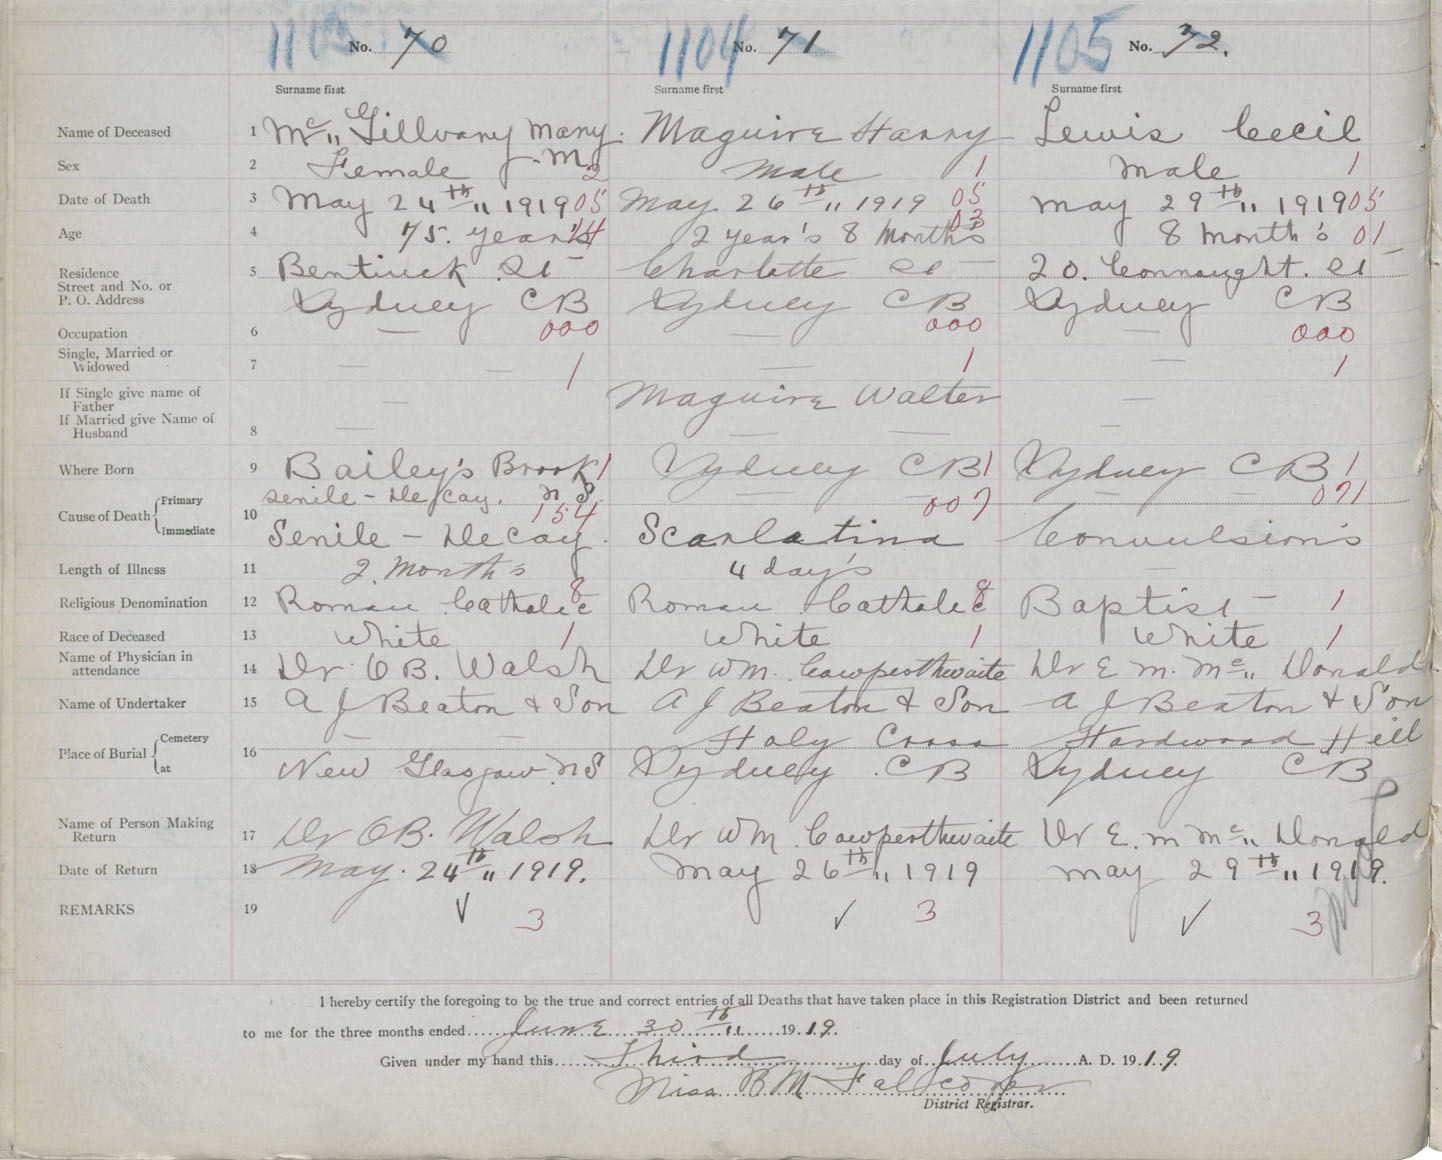 1103 No. 70 1104 No. 71 1105 No. 72.
Surname first Surname first Surname first
Name of Deceased 1 Mc„ Gillvary Mary. M Maguire Harry Lewis Cecil
Sex 2 Female 2 Male 1 Male 1
Date of Death 3 May 24th„ 1919 05 May 26th„ 1919 05 May 29th„ 1919 05
Age 4 75. year's 14 2 year's 8 Month's 03 8 Month's 01
Residence
Street and No. or
P. O. Address
5 Bentinck St — Charlotte St — 20. Connaught. St —
Sydney CB Sydney CB Sydney CB
Occupation 6 — 000 — 000 — 000
Single, Married or
Widowed
7 — — 1 — 1 — 1
If Single give name of
Father
— Maguire Walter —
If Married give Name of
Husband
8 — — — —
Where Born 9 Bailey's Brook 1 Sydney CB 1 Sydney CB 1
N S
Cause of Death { Primary Senile - Decay. 154 — — 007 — — 071
10
Immediate Senile - Decay. Scarlatina Convulsion's
Length of Illness 11 2. Month's 4 day's —
Religious Denomination 12 Roman Catholic 8 Roman Catholic 8 Baptist — 1
Race of Deceased 13 White 1 White 1 White 1
Name of Physician in
attendance
14 Dr O B. Walsh Dr WM. Cowperthwaite Dr E. M. Mc„ Donald.
Name of Undertaker 15 A J Beaton & Son A J Beaton & Son A J Beaton & Son
Place of Burial { Cemetery — — Holy Cross Hardwood Hill
16
at New Glasgow N S Sydney. CB Sydney CB
Name of Person Making
Return
17 Dr OB. Walsh Dr WM. Cowperthwaite Dr E. M Mc„ Donald
Date of Return 18 May. 24th„ 1919. May 26th„ 1919 May 29th„ 1919.
REMARKS 19 ✓ 3 ✓ 3 ✓ 3
I hereby certify the foregoing to be the true and correct entries of all Deaths that have taken place in this Registration District and been returned
to me for the three months ended June 30th„ 1919.
Given under my hand this Third day of July A. D. 1919.
Miss B M Falconer
District Registrar.